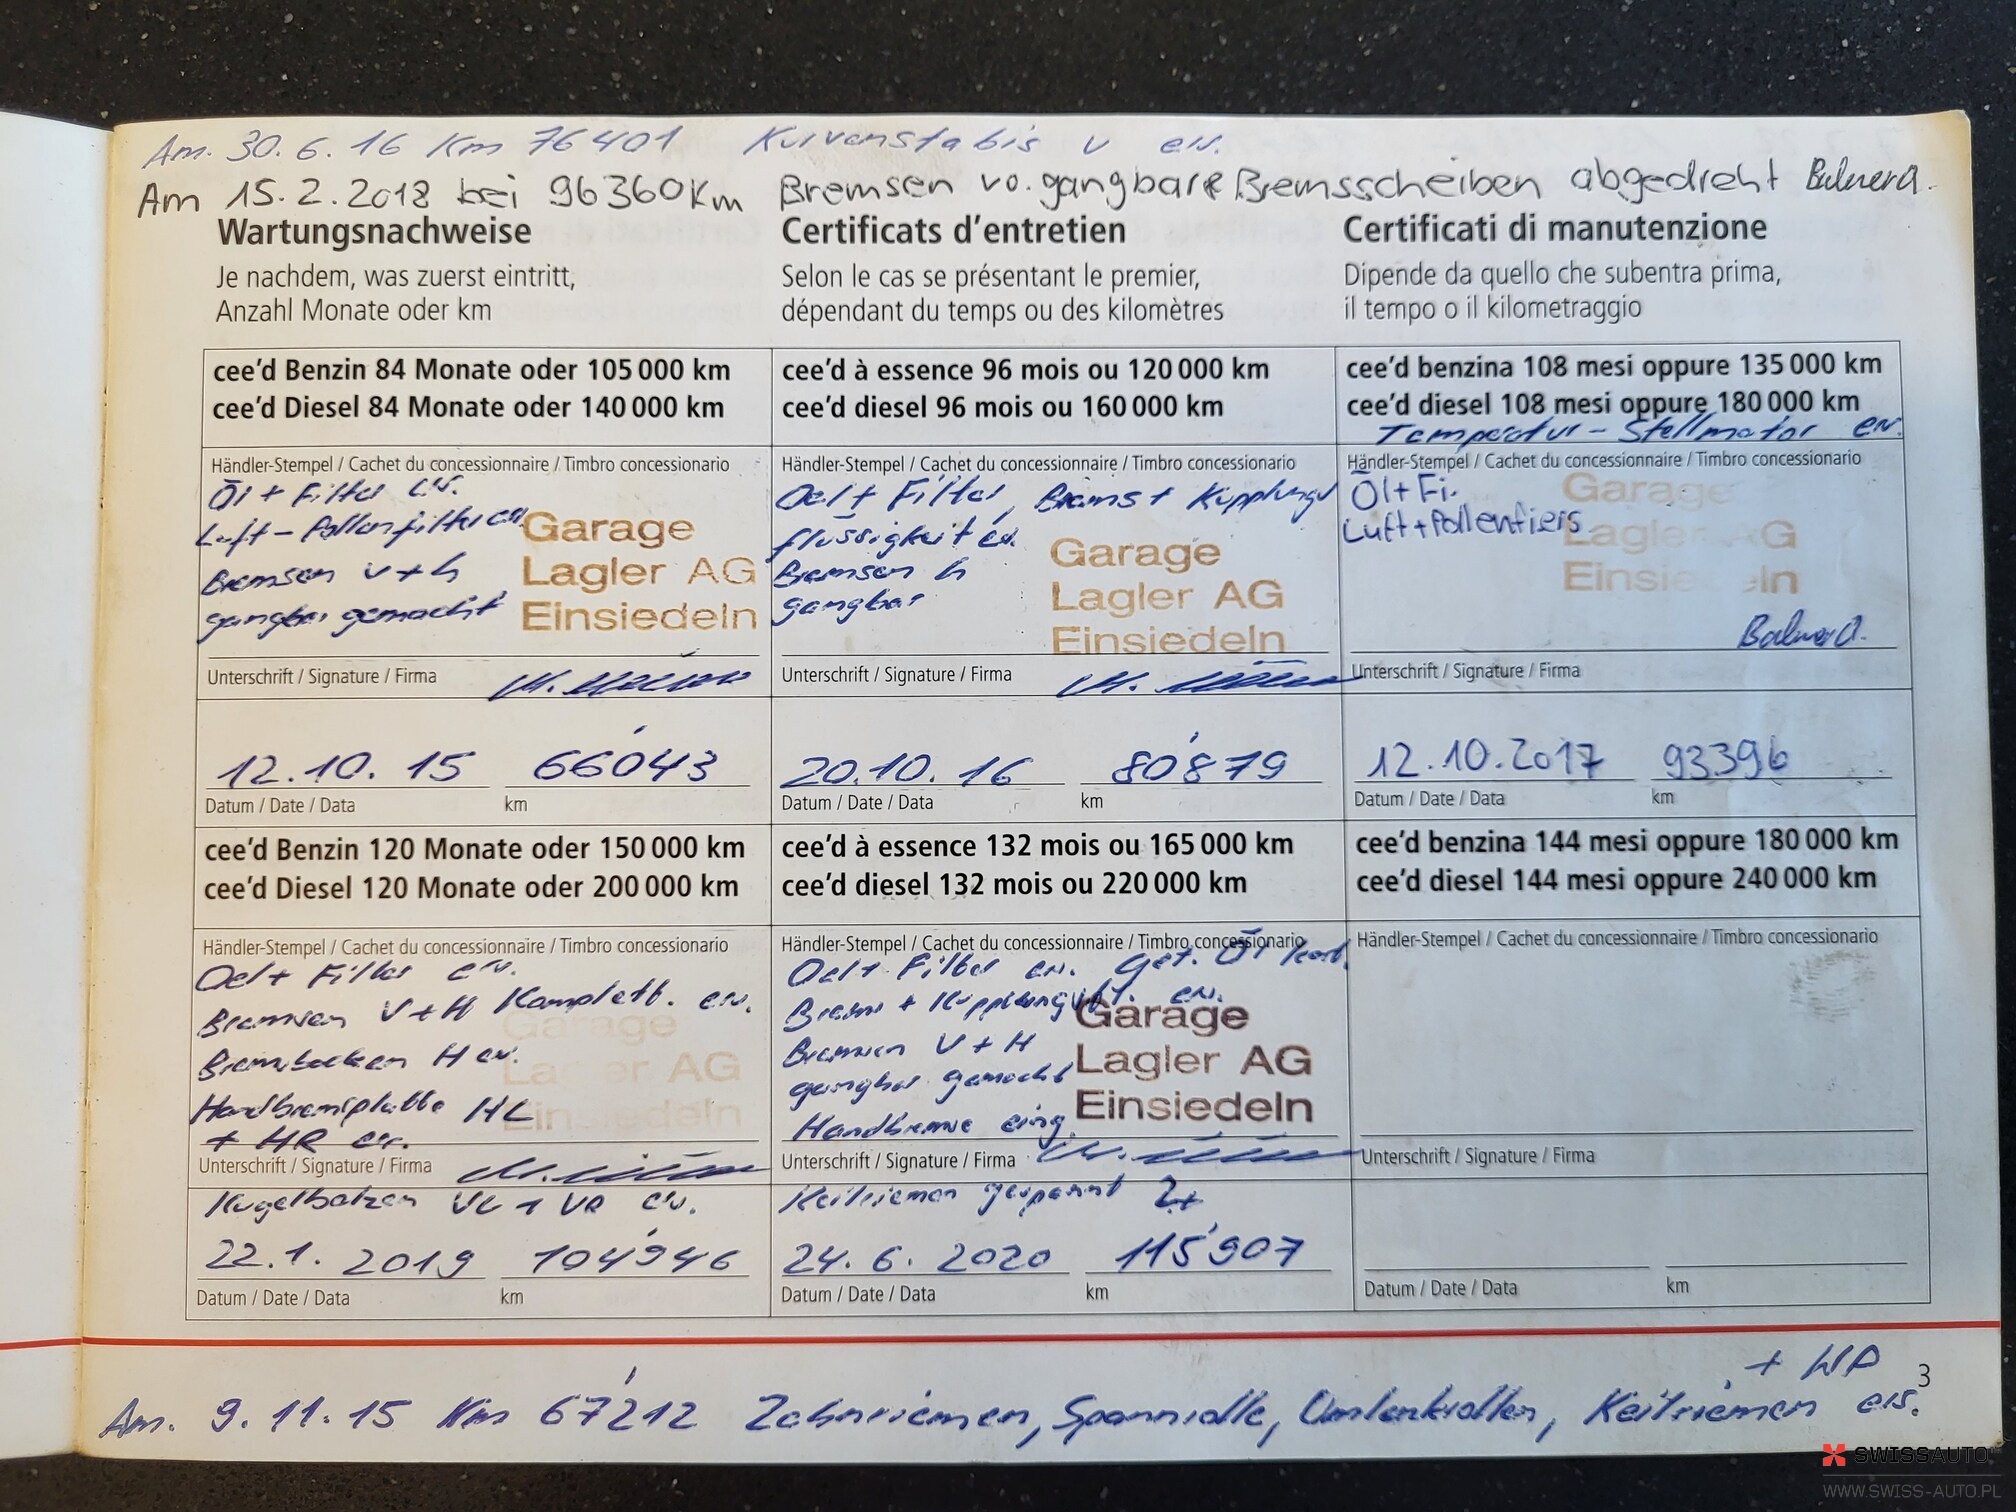 Am. 30. 6. 16 Km 76401 Kurvenstabis v er.
Am 15.2.2018 bei 96360Km Bremsen vo. gangbar Bremsscheiben abgedreht
Wartungsnachweise
Je nachdem, was zuerst eintritt,
Anzahl Monate oder km
Certificats d'entretien
Selon le cas se présentant le premier,
dépendant du temps ou des kilomètres
Certificati di manutenzione
Dipende da quello che subentra prima,
il tempo o il kilometraggio
cee'd Benzin 84 Monate oder 105 000 km
cee'd Diesel 84 Monate oder 140 000 km
Händler-Stempel / Cachet du concessionnaire / Timbro concessionario
Öl + Filter er.
Luft - Pollenfilter er.
Bremsen v + h
gangbar gemacht
Garage
Lagler AG
Einsiedeln
Unterschrift / Signature / Firma
12.10. 15 66'043
Datum / Date / Data km
cee'd à essence 96 mois ou 120 000 km
cee'd diesel 96 mois ou 160 000 km
Händler-Stempel / Cachet du concessionnaire / Timbro concessionario
Oel + Filter, Brems + Kupplungs
flüssigkeit er.
Bremsen h
gangbar
Garage
Lagler AG
Einsiedeln
Unterschrift / Signature / Firma
20.10. 16 80'879
Datum / Date / Data km
cee'd benzina 108 mesi oppure 135 000 km
cee'd diesel 108 mesi oppure 180 000 km
Temperatur - Stellmotor er.
Händler-Stempel / Cachet du concessionnaire / Timbro concessionario
Öl + Fi.
Luft + Pollenfiers
Garage
Lagler AG
Einsiedeln
Unterschrift / Signature / Firma
12.10.2017 93396
Datum / Date / Data km
cee'd Benzin 120 Monate oder 150 000 km
cee'd Diesel 120 Monate oder 200 000 km
Händler-Stempel / Cachet du concessionnaire / Timbro concessionario
Oel + Filter er.
Bremsen V + H Komplett. er.
Bremsbacken H er.
Handbremsplatte HL
+ HR er.
Garage
Lagler AG
Einsiedeln
Unterschrift / Signature / Firma
Kugelbolzen VL + VR er.
22.1. 2019 104'946
Datum / Date / Data km
cee'd à essence 132 mois ou 165 000 km
cee'd diesel 132 mois ou 220 000 km
Händler-Stempel / Cachet du concessionnaire / Timbro concessionario
Oel + Filter er. Get. Öl kont.
Brems + Kupplungsfl. er.
Bremsen V + H
gangbar gemacht
Handbremse eing.
Garage
Lagler AG
Einsiedeln
Unterschrift / Signature / Firma
Keilriemen gespannt 2x
24. 6. 2020 115'907
Datum / Date / Data km
cee'd benzina 144 mesi oppure 180 000 km
cee'd diesel 144 mesi oppure 240 000 km
Händler-Stempel / Cachet du concessionnaire / Timbro concessionario
Unterschrift / Signature / Firma
Datum / Date / Data km
+ WP
3
Am. 9. 11. 15 Km 67'212 Zahnriemen, Spannrolle, Umlenkrollen, Keilriemen ers.
SWISSAUTO
WWW.SWISS-AUTO.PL